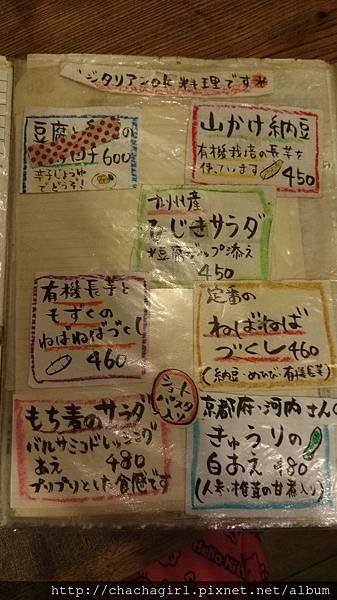 ベジタリアンOK料理です*
豆腐と
600
辛子じょうゆ
でどうぞ!
山かけ納豆
有機栽培の長芋を
使っています
450
九州産
ひじきサラダ
*豆腐ディップ添え
450
有機長芋と
もずくの
ねばねばづくし
460
定番の
ねばねば
づくし460
(納豆・めひび・有機長芋)
ショート
パスタ
入り
もち麦のサラダ
バルサミコドレッシング
あえ 480
プリプリとした食感です
京都府・河内さんの
きゅうりの
白あえ 480
(人参・椎茸の甘煮入り)
Hello Kitty
http://chachagirl.pixnet.net/album